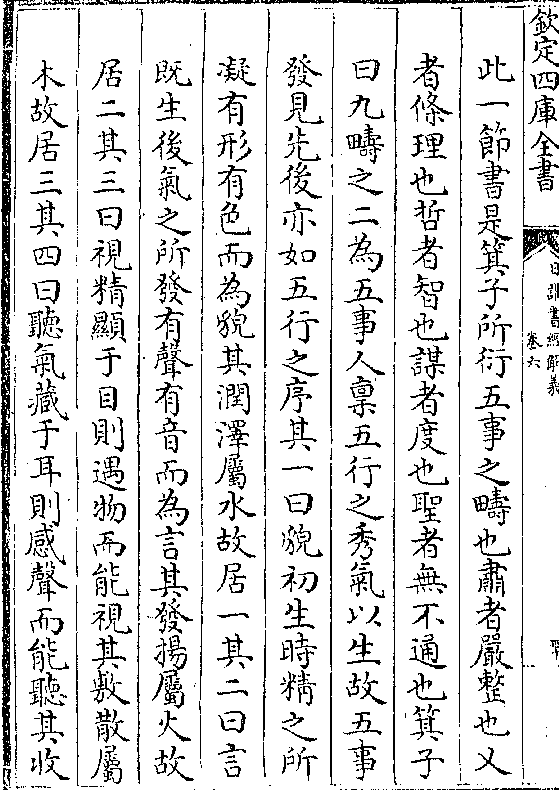 欽定四庫全書
日講書經解義
卷六
此一節書是箕子所衍五事之疇也肅者嚴整也乂
者條理也哲者智也謀者度也聖者無不通也箕子
曰九疇之二為五事人稟五行之秀氣以生故五事
發見先後亦如五行之序其一曰貌初生時精之所
凝有形有色而為貌其潤澤屬水故居一其二曰言
既生後氣之所發有聲有音而為言其發揚屬火故
居二其三曰視精顯于目則遇物而能視其敷散屬
木故居三其四曰聽氣藏于耳則感聲而能聽其收